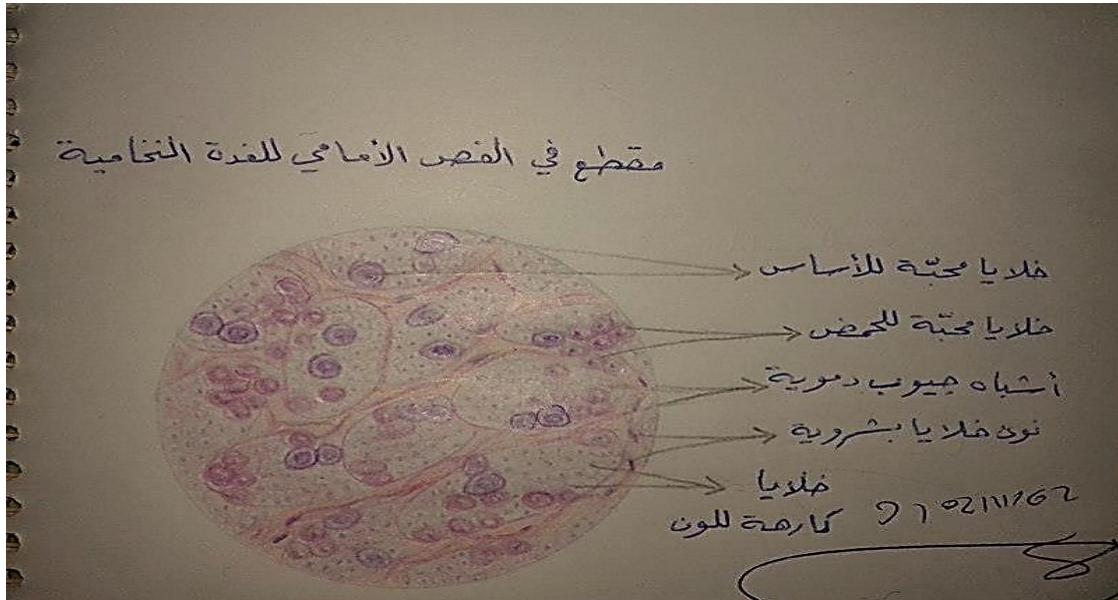 مقطع في الفص الأمامي للغدة النخامية
خلايا محبّة للأساس
خلايا محبّة للحمض
أشباه جيوب دموية
نوى خلايا بشروية
خلايا
كارهة للون